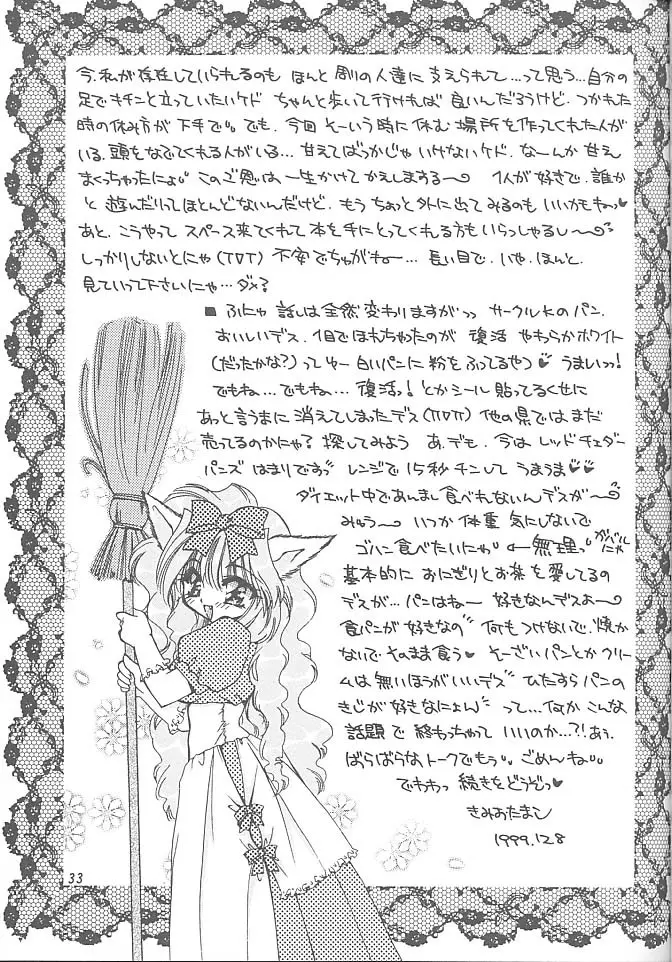 今、私が存在していられるのも ほんと 周りの人達に 支えられて…って思う…自分の
足でキチンと立っていたいケド ちゃんと歩いて行ければ 良いんだろうけど、つかれた
時の休み方が 下手で。でも、今回 そーいう時に休む 場所を作ってくれた人が
いる、頭をなでてくれる人がいる…甘えてばっかじゃ いけないケド、なーんか 甘え
まくっちゃったにょ。このご恩は一生かけて かえしまする〜 1人が好きで、誰か
と 遊んだりってほとんどないんだけど、もう ちょっと外に出てみるのも いいかもねっ♥
あと、こうやって スペース来てくれて 本を手にとってくれる方も いらっしゃるし〜
しっかりしないとにゃ(TДT) 不安でちゅがねー…長い目で、いや、ほんと、
見ていって下さいにゃ…ダメ?
■ ふにゃ 話しは全然変わりますがっ サークルKのパン、
おいしいデス、1日でほれちゃったのが 復活 やわらかホワイト
(だったかな?)ってゆー 白いパンに 粉をふってるやつ♥ うまいっっ!
でもね…でもね… 復活!とかシール 貼ってるくせに
あっと言うまに 消えてしまったデス(TДT) 他の県では、まだ
売ってるのかにゃ?探してみよう あ、でも、今は レッドチェダー
バーズ はまりですっ レンジで 15秒チンして うまうま♥♥
ダイエット中であんまし食べれないんデスが〜
みゅう〜 いつか 体重 気にしないで
ゴハン食べたいにゃ ←無理っ がんばるにゃ
基本的に おにぎりとお茶を愛してるの
デスが…パンはねー 好きなんデスよー
食パンが好きなの 何もつけないで、焼か
ないで そのまま食う そーざいパンとか クリー
ムは無いほうがいいデス ひたすら パンの
きじが好きなにょん って…何か こんな
話題 で 終わっちゃって いいのか…?!あぅ、
ばらばらな、トークでもう。ごめんね。
でわわっ 続きをどうぞっ♥
きみおたまこ
1999.12.8
33